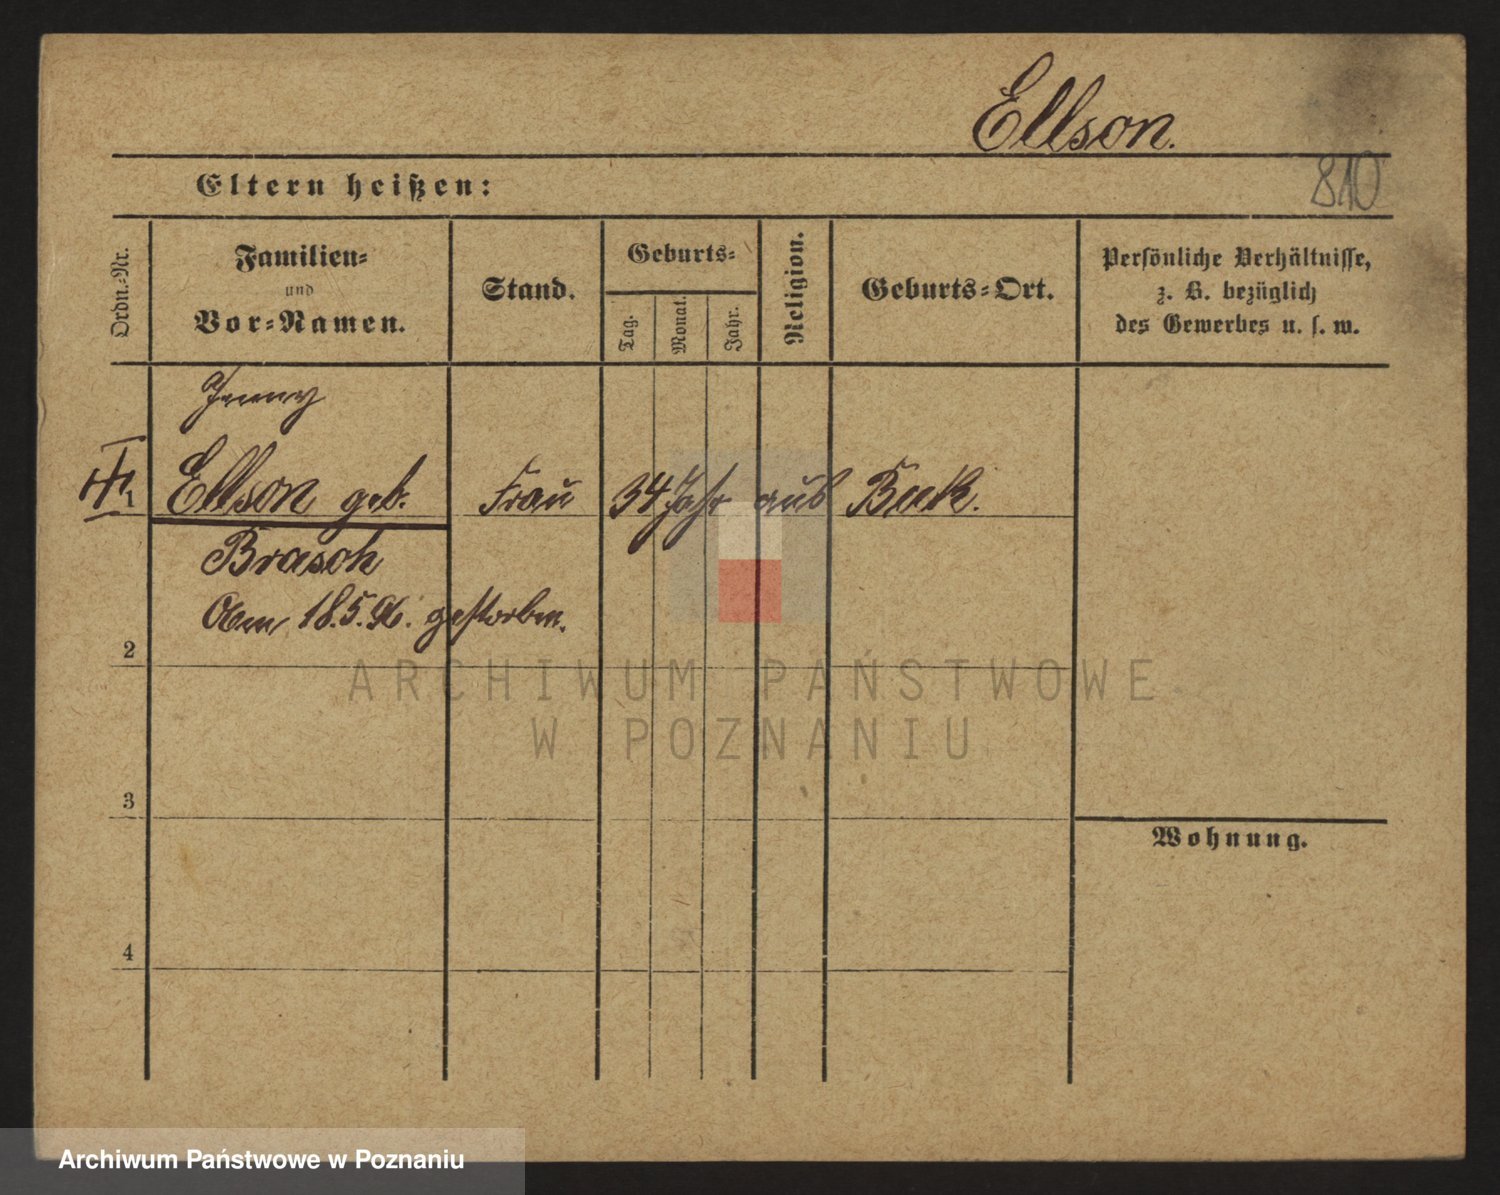 Ellson.
810
Eltern heißen:
Ordn.-Nr.
Familien-
und
Vor-Namen.
Stand.
Geburts-
Tag.
Monat.
Jahr.
Religion.
Geburts-Ort.
Persönliche Verhältnisse,
z. B. bezüglich
des Gewerbes u. s. w.
Jenny
1 Ellson geb. Frau 34 Jahr aus Buk.
Brasch
Am 18.5. gestorben.
2
3
Wohnung.
4
ARCHIWUM PAŃSTWOWE
W POZNANIU
Archiwum Państwowe w Poznaniu